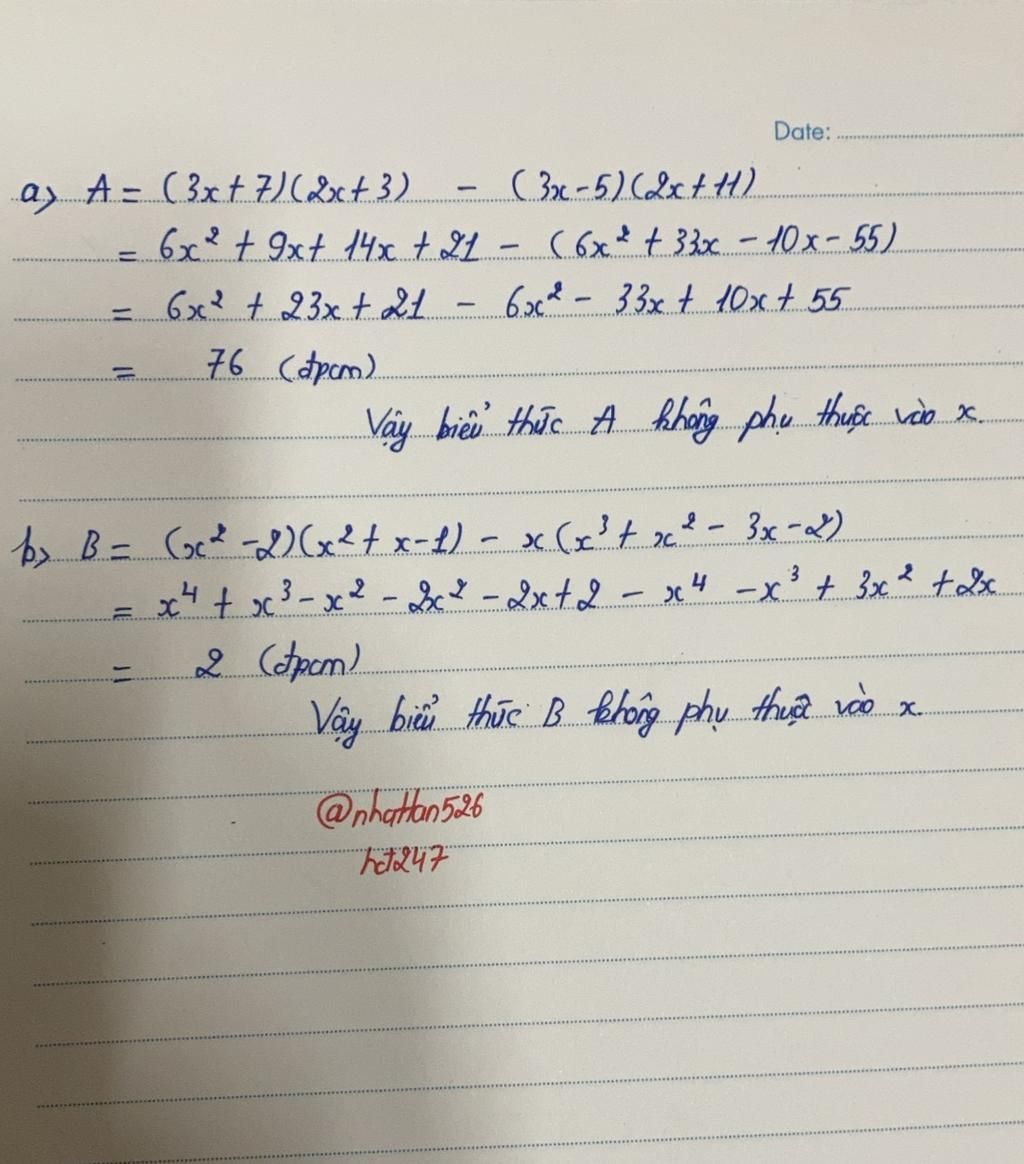 Date:
a) A = (3x + 7)(2x + 3) - (3x - 5)(2x + 11)
= 6x² + 9x + 14x + 21 - (6x² + 33x - 10x - 55)
= 6x² + 23x + 21 - 6x² - 33x + 10x + 55
= 76 (đpcm)
Vậy biểu thức A không phụ thuộc vào x.
b) B = (x² - 2)(x² + x - 1) - x(x³ + x² - 3x - 2)
= x⁴ + x³ - x² - 2x² - 2x + 2 - x⁴ - x³ + 3x² + 2x
= 2 (đpcm)
Vậy biểu thức B không phụ thuộc vào x.
@nhattan526
hct247